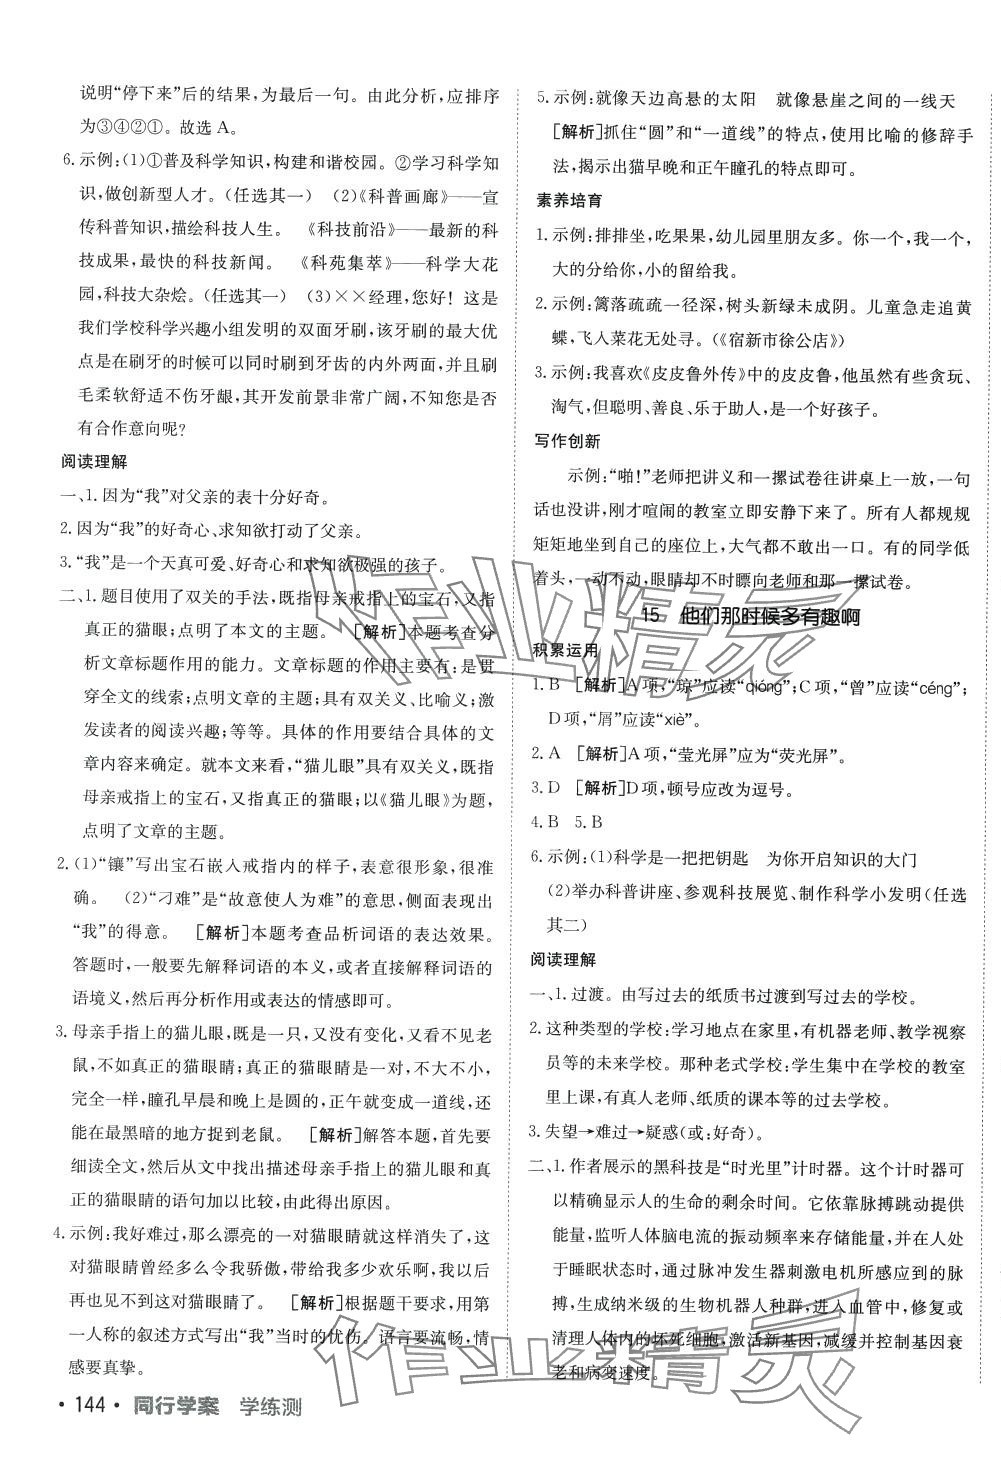 说明“停下来”后的结果,为最后一句。由此分析,应排序
为③④②①。故选 A。
6. 示例:(1)①普及科学知识,构建和谐校园。②学习科学知
识,做创新型人才。(任选其一) (2)《科普画廊》——宣
传科普知识,描绘科技人生。 《科技前沿》——最新的科
技成果,最快的科技新闻。 《科苑集萃》——科学大花
园,科技大杂烩。(任选其一) (3)××经理,您好! 这是
我们学校科学兴趣小组发明的双面牙刷,该牙刷的最大优
点是在刷牙的时候可以同时刷到牙齿的内外两面,并且刷
毛柔软舒适不伤牙龈,其开发前景非常广阔,不知您是否
有合作意向呢?
阅读理解
一、1. 因为“我”对父亲的表十分好奇。
2. 因为“我”的好奇心、求知欲打动了父亲。
3. “我”是一个天真可爱、好奇心和求知欲极强的孩子。
二、1. 题目使用了双关的手法,既指母亲戒指上的宝石,又指
真正的猫眼;点明了本文的主题。 [解析]本题考查分
析文章标题作用的能力。文章标题的作用主要有:是贯
穿全文的线索;点明文章的主题;具有双关义、比喻义;激
发读者的阅读兴趣;等等。具体的作用要结合具体的文
章内容来确定。就本文来看,“猫儿眼”具有双关义,既指
母亲戒指上的宝石,又指真正的猫眼;以《猫儿眼》为题,
点明了文章的主题。
2. (1)“镶”写出宝石嵌入戒指内的样子,表意很形象,很准
确。 (2)“刁难”是“故意使人为难”的意思,侧面表现出
“我”的得意。 [解析]本题考查品析词语的表达效果。
答题时,一般要先解释词语的本义,或者直接解释词语的
语境义,然后再分析作用或表达的情感即可。
3. 母亲手指上的猫儿眼,既是一只,又没有变化,又看不见老
鼠,不如真正的猫儿眼睛;真正的猫眼睛是一对,而且两只
完全一样,瞳孔早晨和晚上是圆的,正午就变成一道线,还
能在最黑暗的地方捉到老鼠。 [解析]解答本题,首先要
细读全文,然后从文中找出描述母亲手指上的猫儿眼和真
正的猫眼睛的语句加以比较,由此得出原因。
4. 示例:我好难过,那么漂亮的一对猫眼睛就这样消失了。这
对猫眼睛曾经多么令我骄傲,带给我多少欢乐啊。我以后
再也见不到这对猫眼睛了。 [解析]根据题干要求,用第
一人称的叙述方式写出“我”当时的忧伤。语言要流畅,情
感要真挚。
· 144 · 同行学案 学练测
5. 示例:就像天边高悬的太阳 就像悬崖之间的一线天
[解析]抓住“圆”和“一道线”的特点,使用比喻的修辞手
法,揭示出猫早晚和正午瞳孔的特点即可。
素养培育
1. 示例:排排坐,吃果果,幼儿园里朋友多。你一个,我一个,
大的分给你,小的留给我。
2. 示例:篱落疏疏一径深,树头新绿未成阴。儿童急走追黄
蝶,飞入菜花无处寻。(《宿新市徐公店》)
3. 示例:我喜欢《皮皮鲁外传》中的皮皮鲁,他虽然有些贪玩、
淘气,但聪明、善良、乐于助人,是一个好孩子。
写作创新
示例:“啪!”老师把讲义和一摞试卷往讲桌上一放,一句
话也没讲,刚才喧闹的教室立即安静下来了。所有人都规规
矩矩地坐到自己的座位上,大气都不敢出一口。有的同学低
着头,一动不动,眼睛却不时瞟向老师和那一摞试卷。
15 他们那时候多有趣啊
积累运用
1. B [解析]A项,“琼”应读“qióng”;C项,“曾”应读“céng”;
D项,“屑”应读“xiè”。
2. A [解析]A项,“莹光屏”应为“荧光屏”。
3. D [解析]D项,顿号应改为逗号。
4. B 5. B
6. 示例:(1)科学是一把把钥匙 为你开启知识的大门
(2)举办科普讲座、参观科技展览、制作科学小发明(任选
其二)
阅读理解
一、1. 过渡。由写过去的纸质书过渡到写过去的学校。
2. 这种类型的学校:学习地点在家里,有机器老师、教学视察
员等的未来学校。那种老式学校:学生集中在学校的教室
里上课,有真人老师、纸质的课本等的过去学校。
3. 失望→难过→疑惑(或:好奇)。
二、1. 作者展示的黑科技是“时光里”计时器。这个计时器可
以精确显示人的生命的剩余时间。它依靠脉搏跳动提供
能量,监听人体脑电流的振动频率来存储能量,并在人处
于睡眠状态时,通过脉冲发生器刺激电机所感应到的脉
搏,生成纳米级的生物机器人种群,进入血管中,修复或
清理人体内的坏死细胞,激活新基因,减缓并控制基因衰
老和病变速度。
作业精灵
作业精灵